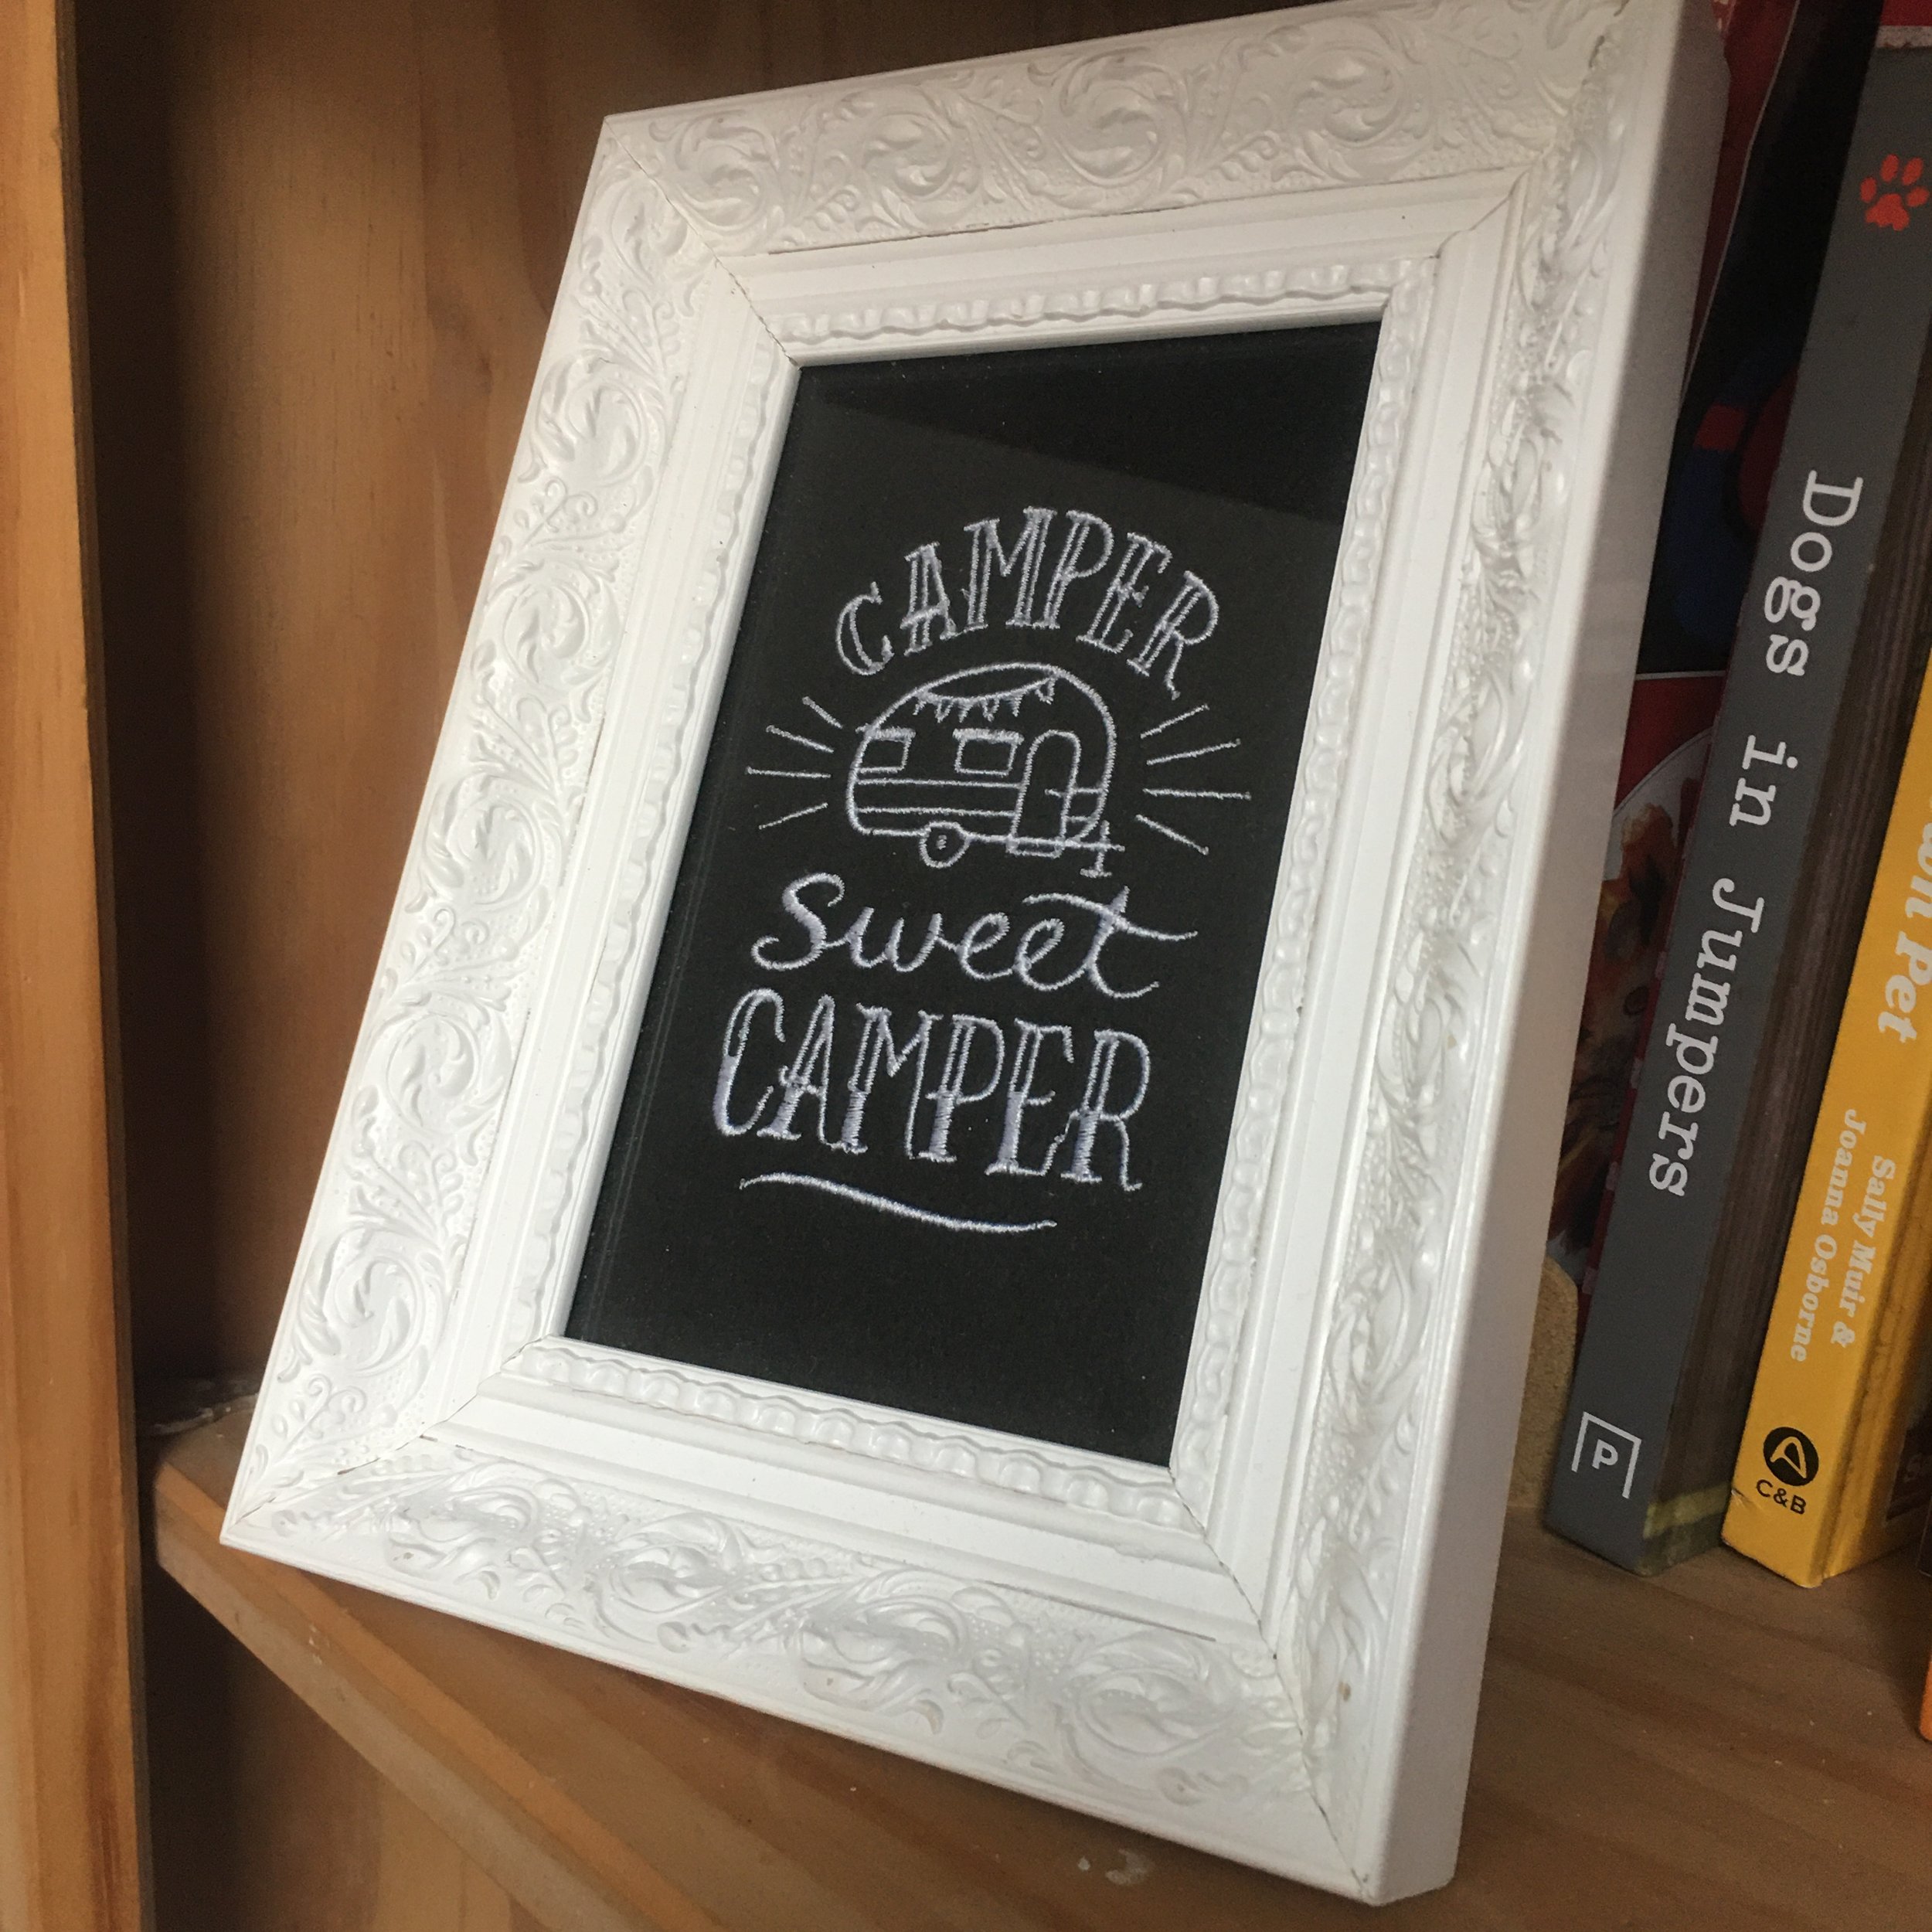 CAMPER
Sweet
CAMPER
Dogs in Jumpers
P
Pet
Sally Muir &
Joanna Osborne
C&B